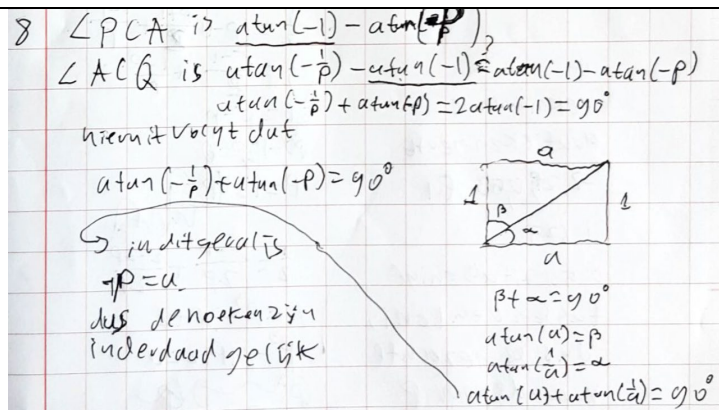 8 ∠PCA is atan(-1) - atan(-p)
∠ACQ is atan(-1/p) - atan(-1) ?= atan(-1) - atan(-p)
atan(-1/p) + atan(-p) = 2atan(-1) = 90°
hieruit volgt dat
atan(-1/p) + atan(-p) = 90°
in dit geval is
-p = a
dus de hoeken zijn
inderdaad gelijk
a
1 β 1
α
a
β + α = 90°
atan(a) = β
atan(1/a) = α
atan(a) + atan(1/a) = 90°